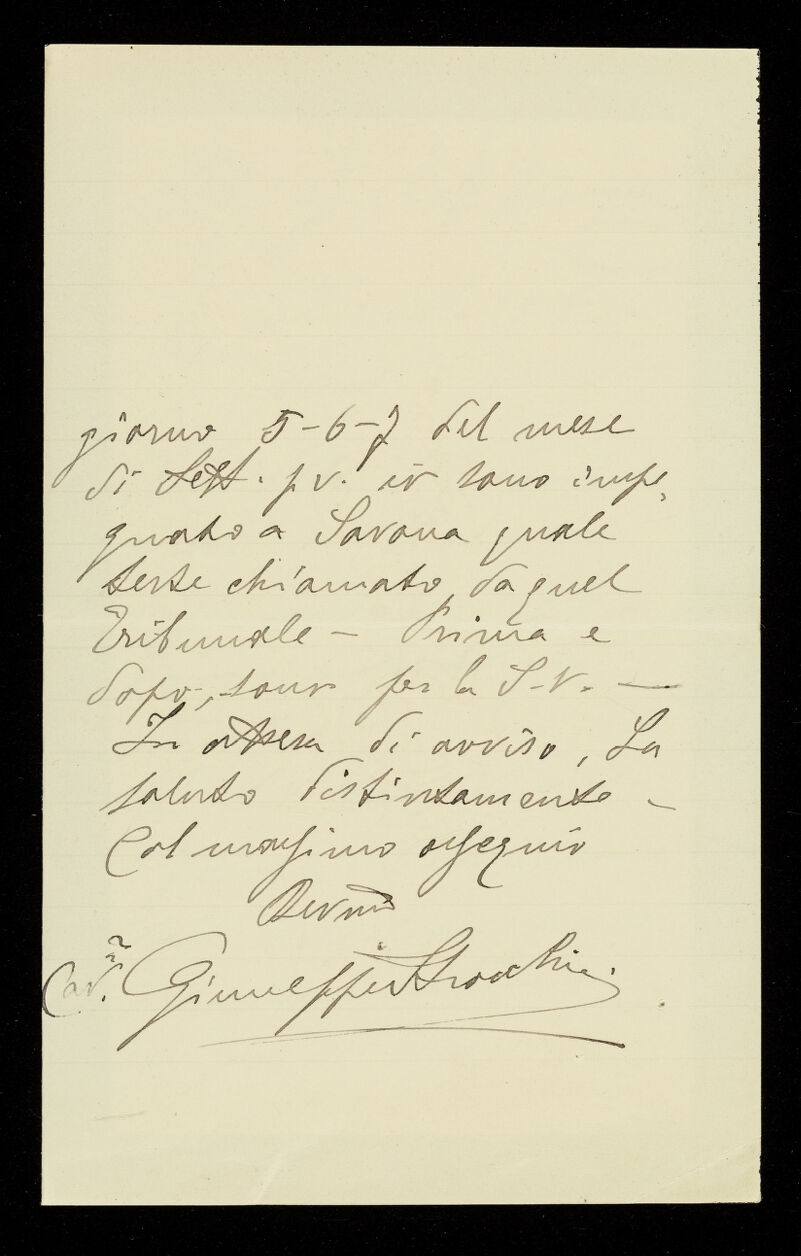 giorno 5-6-7 del mese
di Sett. p. v. io sono impe,
gnato a Savona quale
teste chiamato da quel
Tribunale - Prima e
dopo, sono per la S. V. -
In attesa di avviso, La
saluto distintamente -
Col massimo ossequio
Devmo
Cav.re Giuseppe Strocchi.